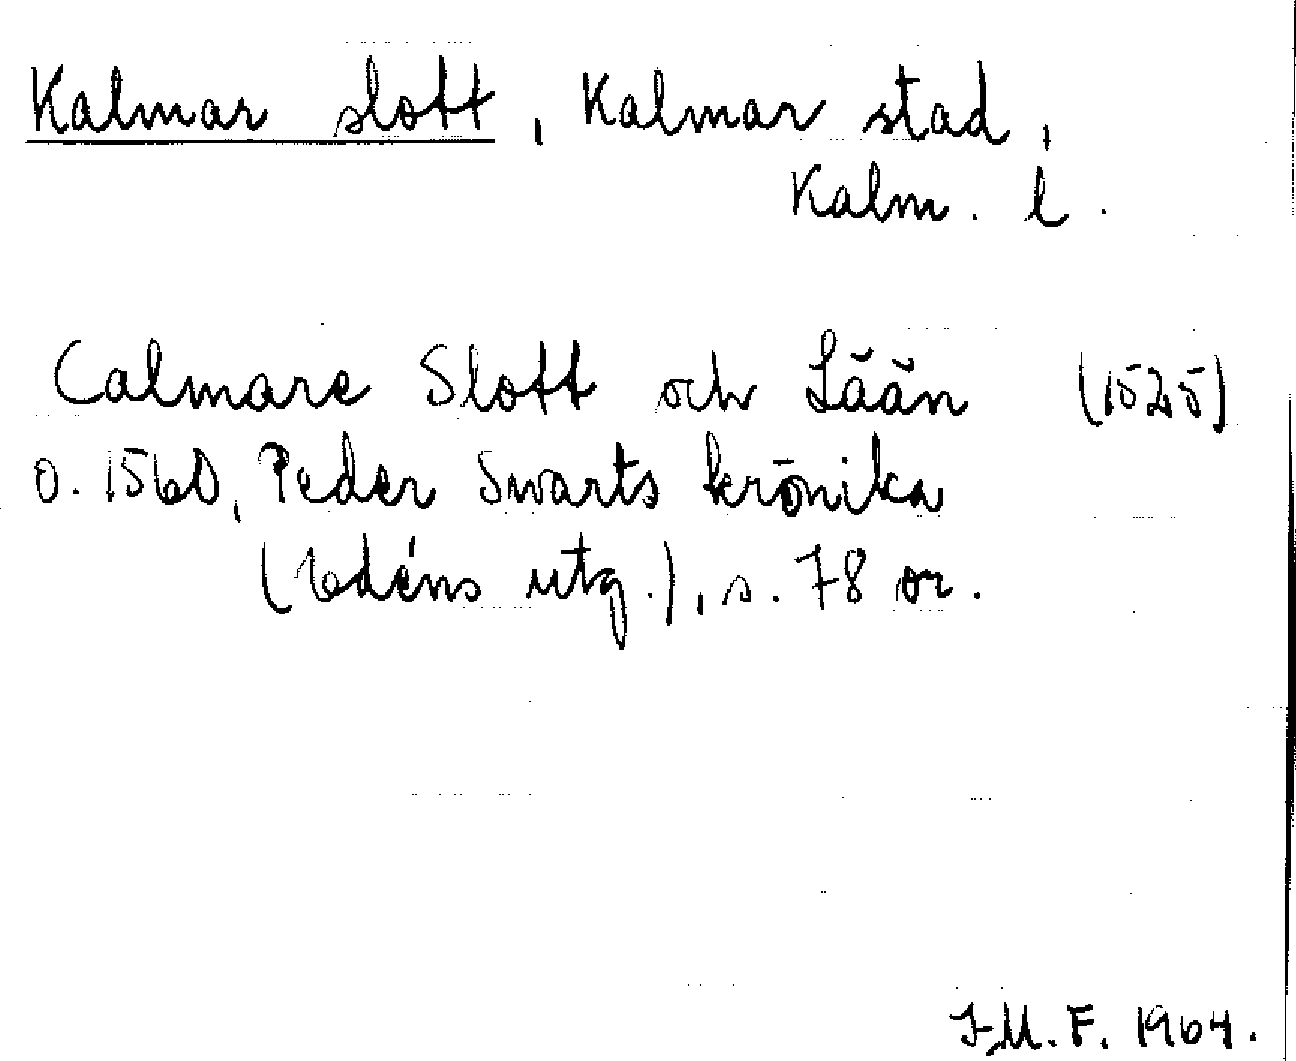 Kalmar slott, Kalmar stad,
Kalm. l.
Calmare Slott och Lään (1525)
o. 1560, Peder Swarts krönika
(Edéns utg.), s. 78 or.
I.M.F. 1964.